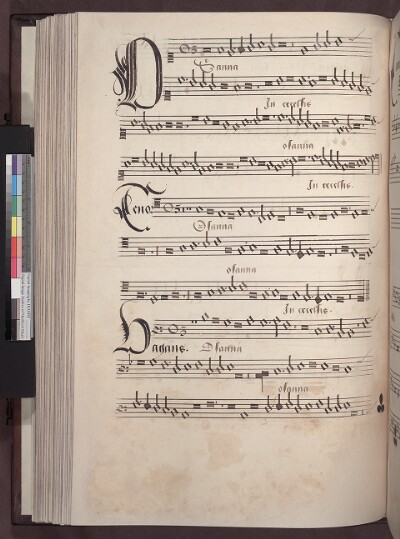 Osanna
In excelsis
osanna
In excelsis.
Tenor
Osanna
osanna
In excelsis.
Vagans. Osanna
osanna